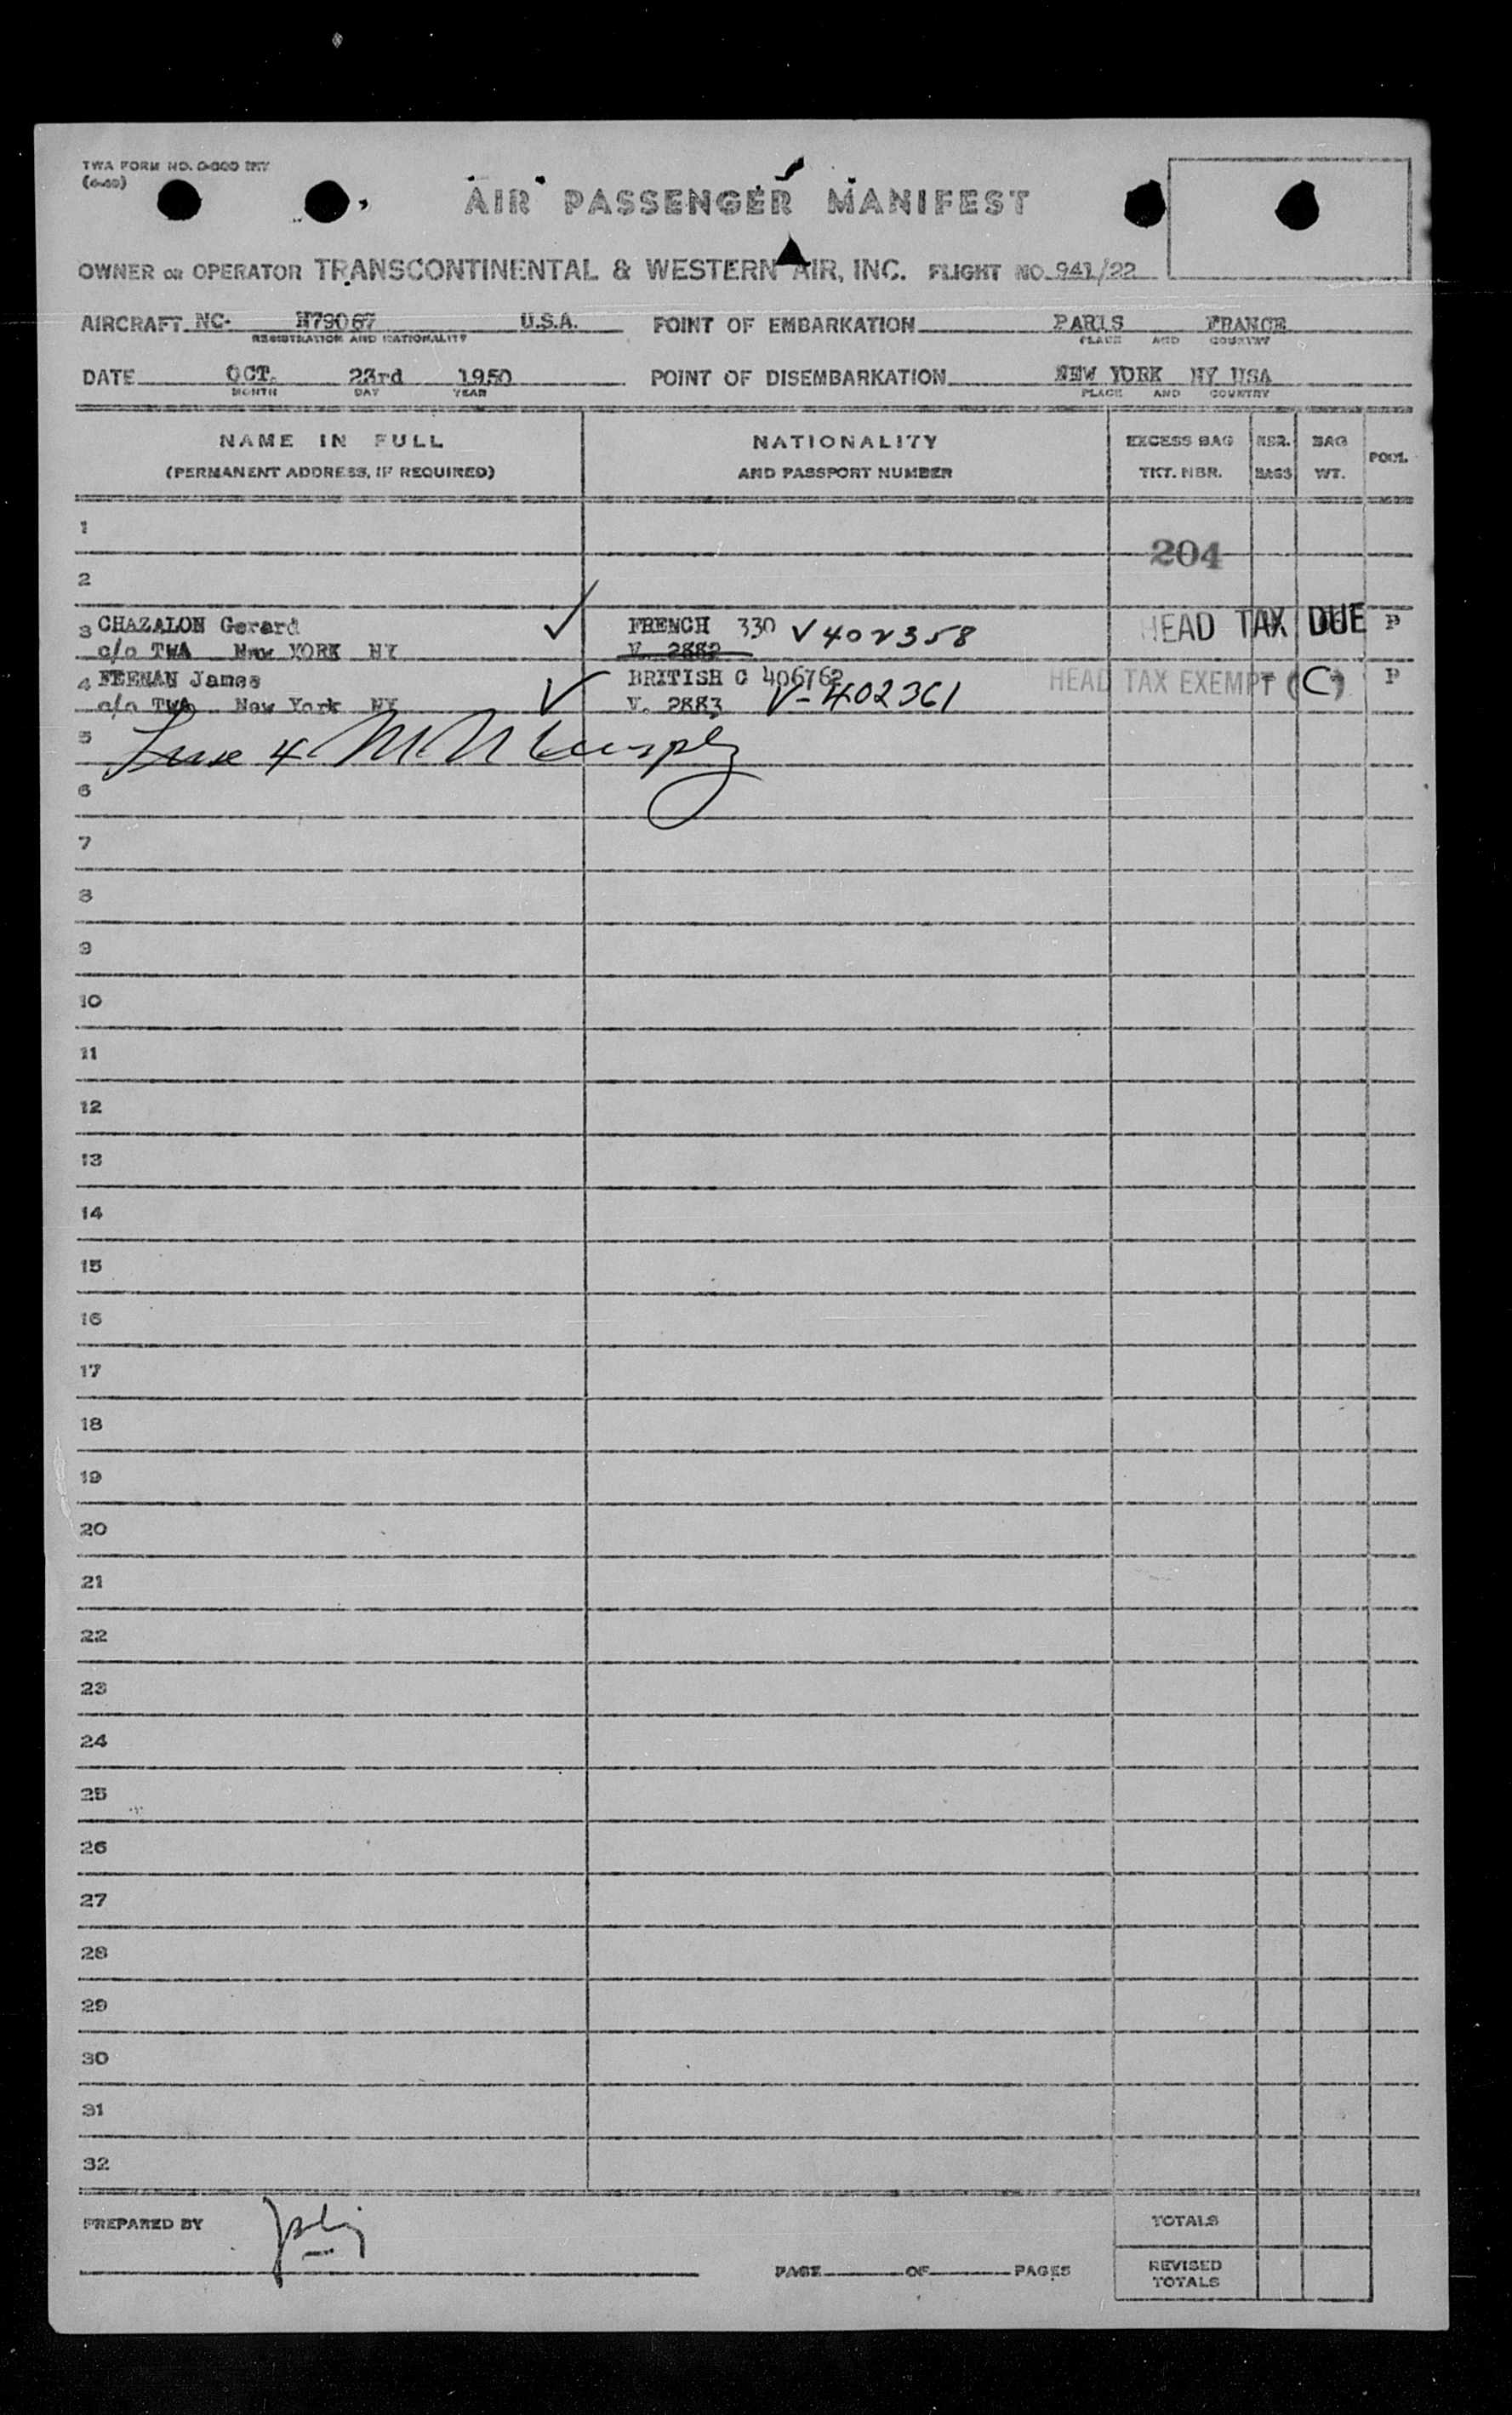 TWA FORM NO.
AIR PASSENGER MANIFEST
OWNER OR OPERATOR TRANSCONTINENTAL & WESTERN AIR, INC. FLIGHT NO. 941/22
AIRCRAFT NC- N79067 U.S.A. POINT OF EMBARKATION PARIS FRANCE
REGISTRATION AND NATIONALITY PLACE AND COUNTRY
DATE OCT. 23rd 1950 POINT OF DISEMBARKATION NEW YORK NY USA
MONTH DAY YEAR PLACE AND COUNTRY
NAME IN FULL NATIONALITY EXCESS BAG NBR. BAG
(PERMANENT ADDRESS, IF REQUIRED) AND PASSPORT NUMBER TKT. NBR. BAGS WT.
1
204
2
3 CHAZALON Gerard ✓ FRENCH 330 V402358 HEAD TAX DUE P
c/o TWA New YORK NY V. 2882
4 FEENAN James BRITISH C 406762 HEAD TAX EXEMPT (C) P
c/o TWA New York NY ✓ V. 2883 V-402361
5 Line 4
6
7
8
9
10
11
12
13
14
15
16
17
18
19
20
21
22
23
24
25
26
27
28
29
30
31
32
PREPARED BY TOTALS
PAGE OF PAGES REVISED
TOTALS